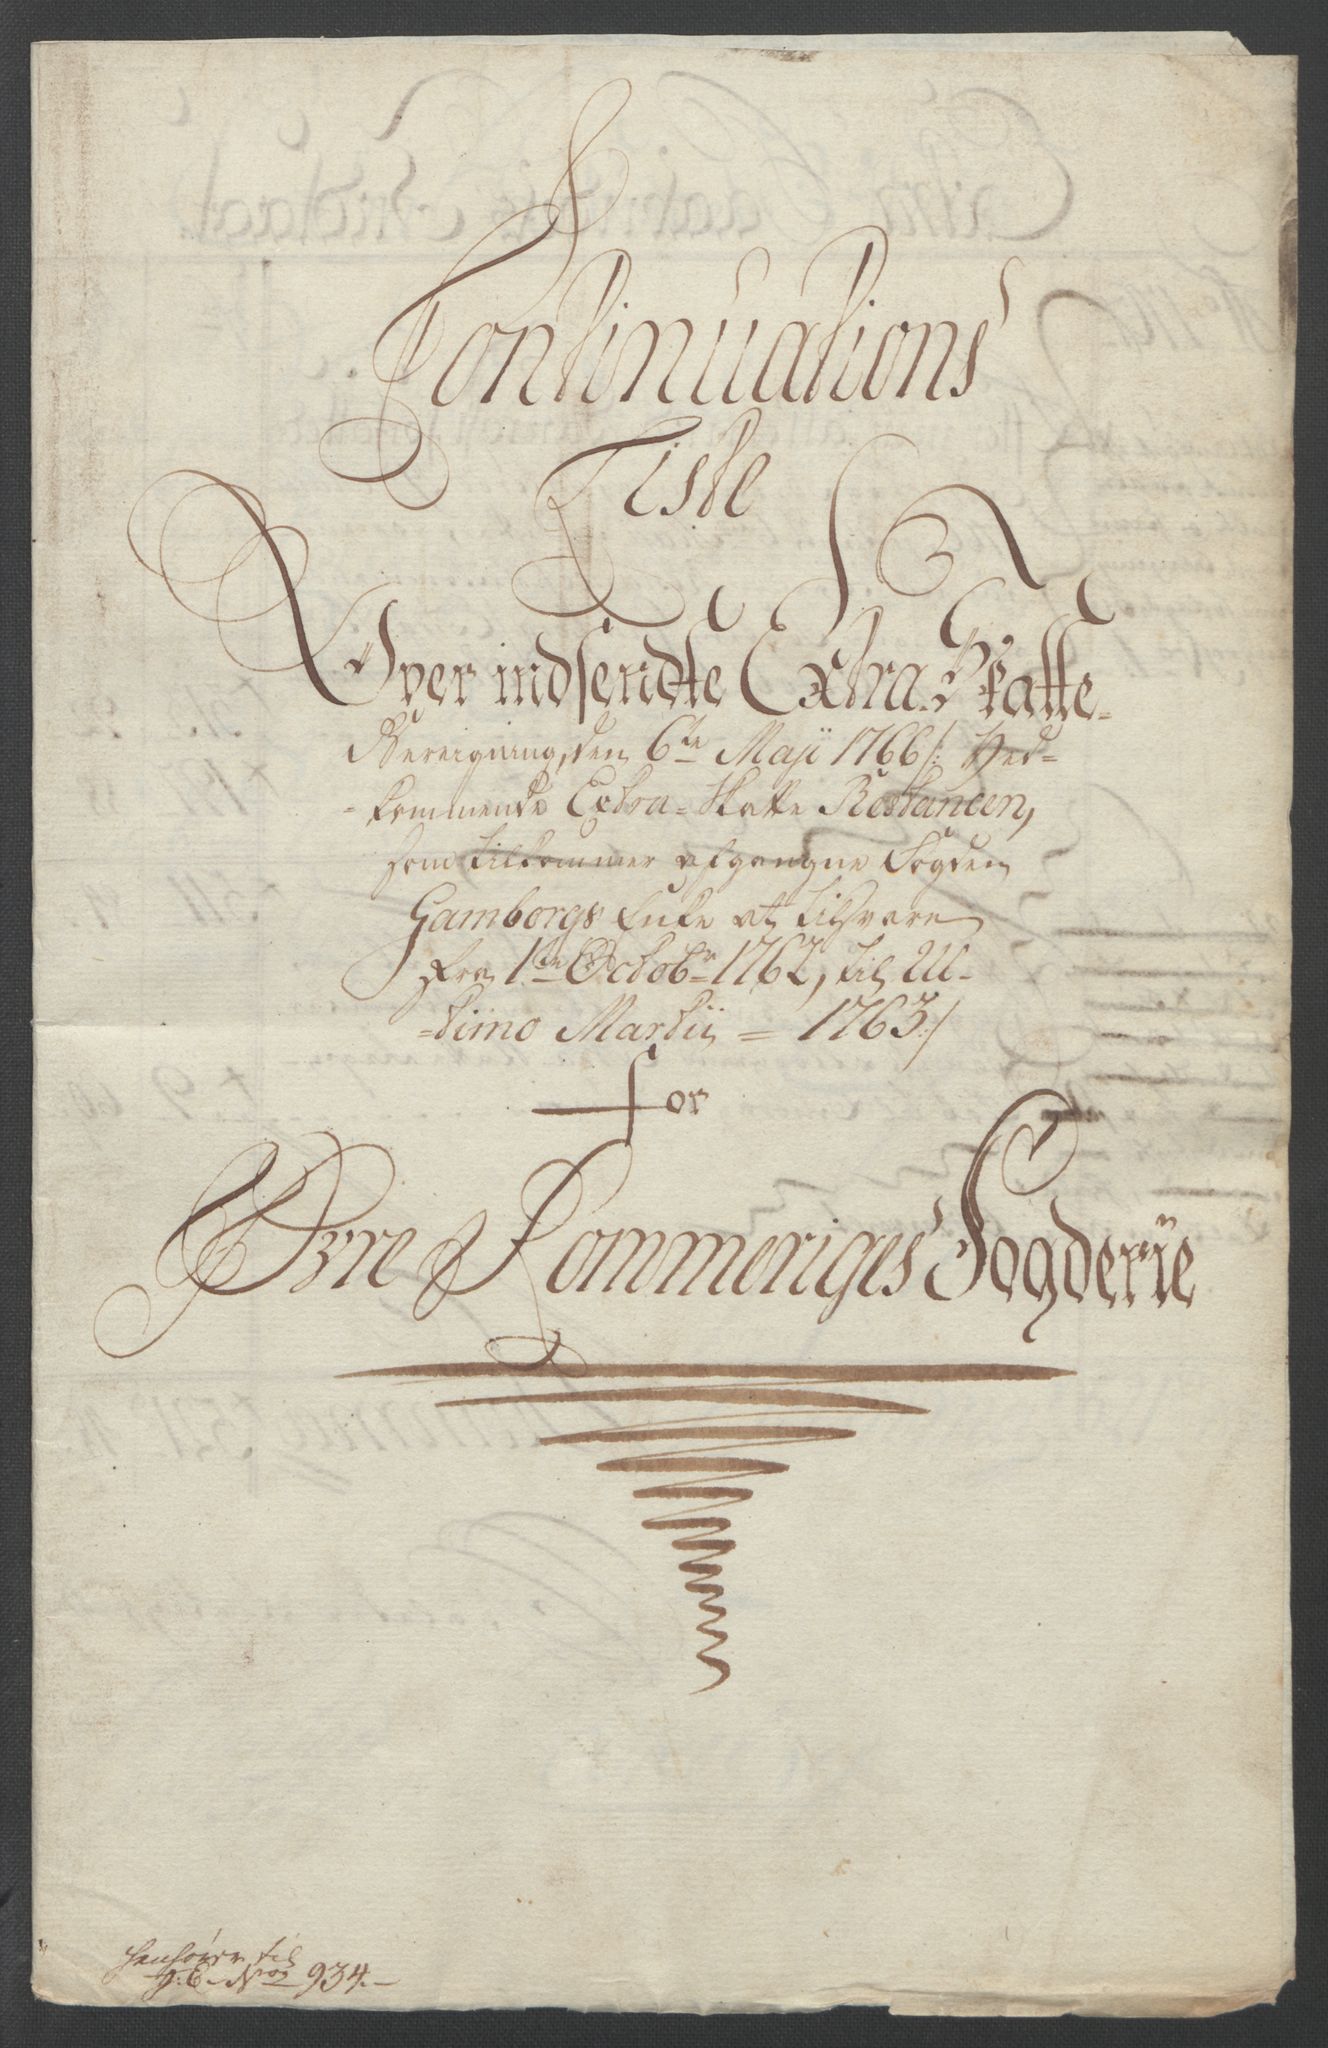 Continuations
Liste
Over indsendte Extra-Skatte-
Bereigning, den 6te Maji 1766 /: Ved-
-kommende Extra-Skatte Restancen,
som tilkommer afgangne Fogden
Gamborgs Enke at tilsvare
fra 1te Octobr 1762, til Ul-
-timo Martii = 1763 :/
for
Øvre Rommeriges Fogderie
henhører til
No 934.-